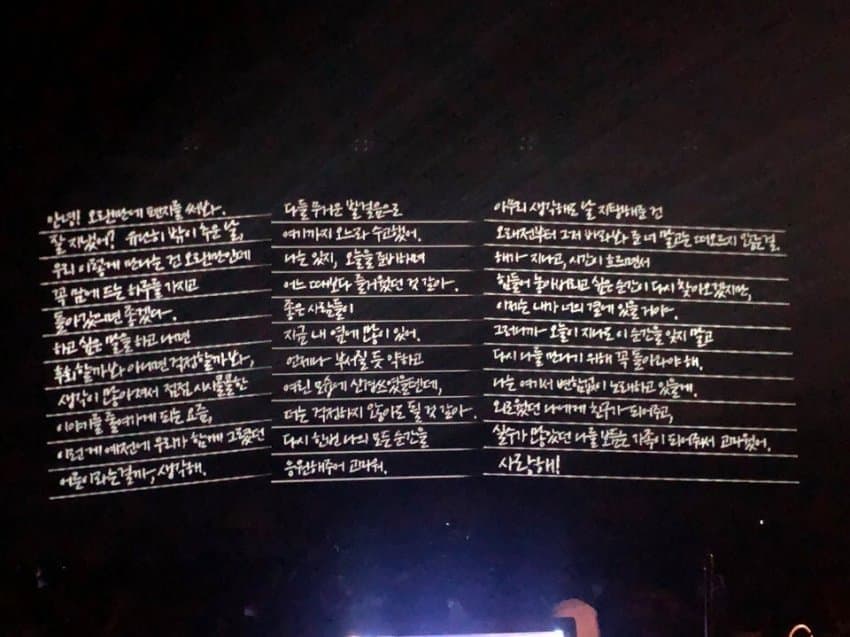 안녕! 오랜만에 편지를 써봐.
잘 지냈어? 유난히 밤이 추운 날,
우리 이렇게 만나는 건 오랜만인데
꼭 맘에 드는 하루를 가지고
돌아갔으면 좋겠다.
하고 싶은 말을 하고 나면
후회할까봐 아니면 걱정할까봐,
생각이 많아져서 점점 시시콜콜한
이야기를 줄여가게 되는 요즘,
이런게 예전에 우리가 함께 그렸던
어른이라는걸까, 생각해.
다들 무거운 발걸음으로
여기까지 오느라 수고했어.
나는 있지, 오늘을 준비하며
어느 때보다 즐거웠던 것 같아.
좋은 사람들이
지금 내 옆에 많이 있어.
언제나 부서질 듯 약하고
여린 모습에 신경쓰였을텐데,
더는 걱정하지 않아도 될 것 같아.
다시 한번 나의 모든 순간을
응원해주어 고마워.
아무리 생각해도 날 지탱해준 건
오래전부터 그저 바라봐 준 너 말고는 떠오르지 않는걸.
해가 지나고, 시간이 흐르면서
힘들어 놓아버리고 싶은 순간이 다시 찾아오겠지만,
이제는 내가 너의 곁에 있을거야.
그러니까 오늘이 지나도 이 순간을 잊지 말고
다시 나를 만나기 위해 꼭 돌아와야 해.
나는 여기서 변함없이 노래하고 있을게.
외로웠던 나에게 친구가 되어주고,
실수가 많았던 나를 보듬는 가족이 되어줘서 고마웠어.
사랑해!